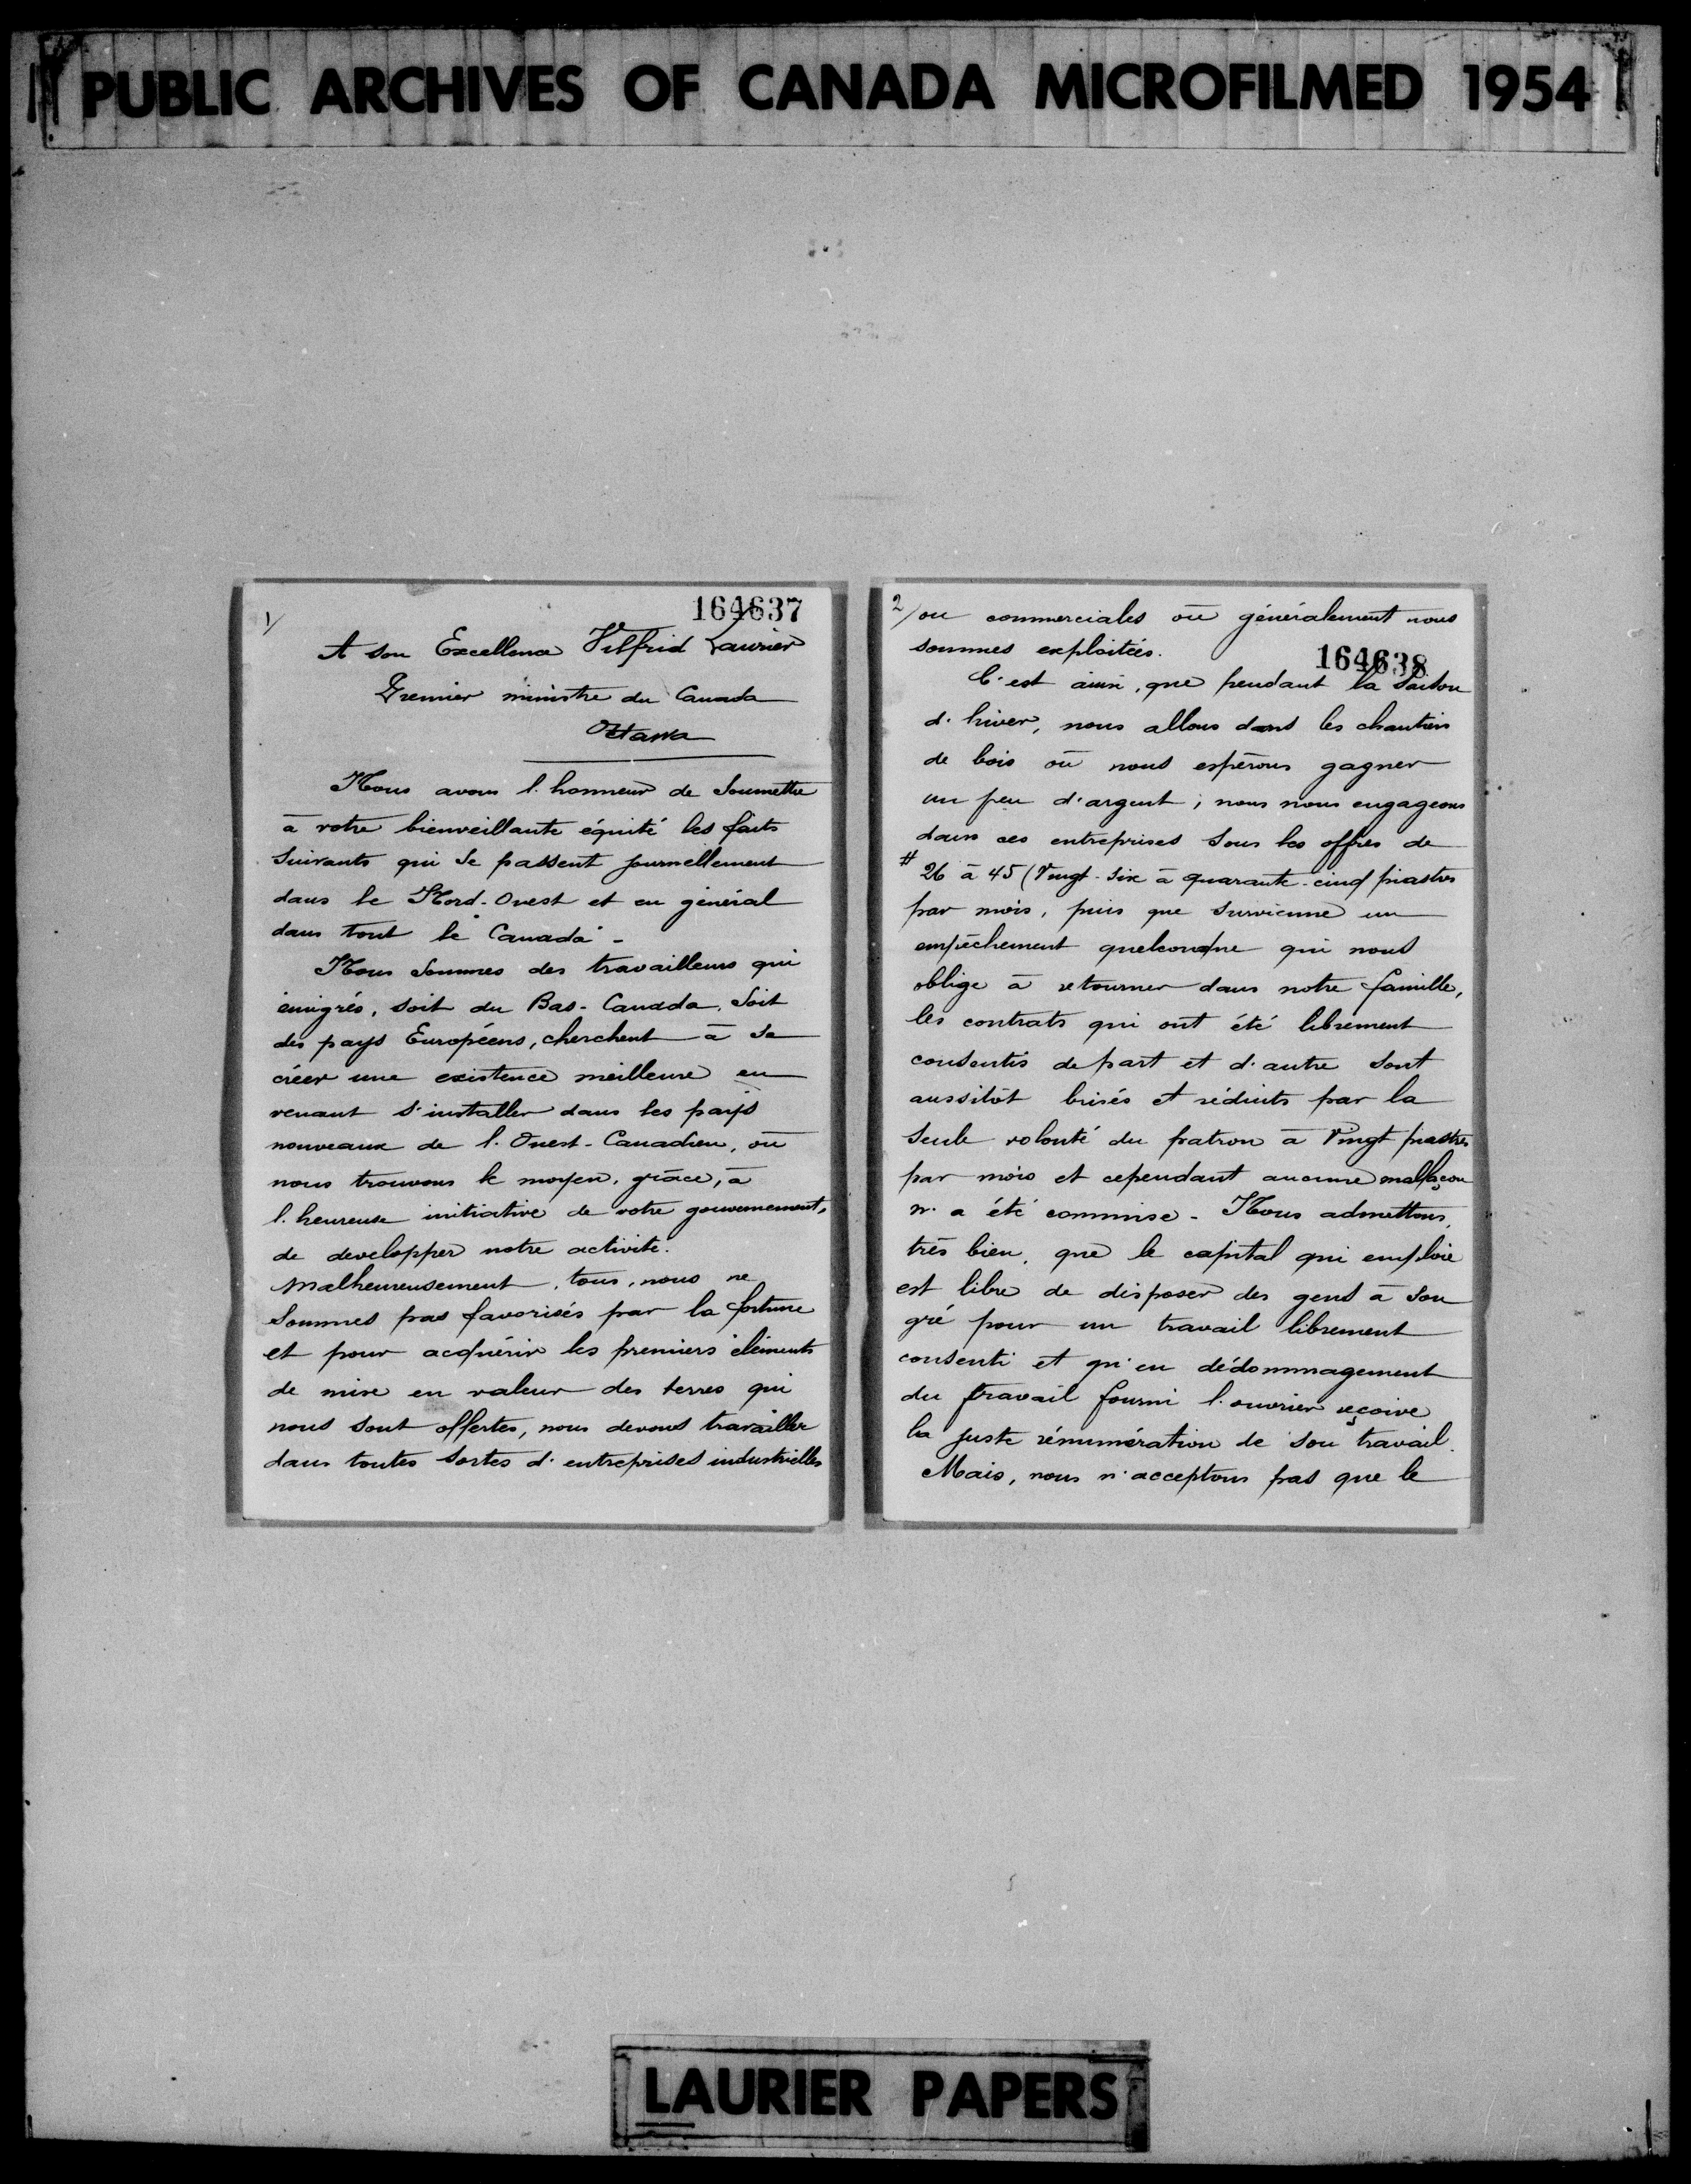 PUBLIC ARCHIVES OF CANADA MICROFILMED 1954
164637
1/
A son Excellence Vilfrid Laurier
Premier ministre du Canada
Ottawa
Nous avons l'honneur de soumettre
à votre bienveillante équité les faits
suivants qui se passent journellement
dans le Nord-Ouest et en général
dans tout le Canada -
Nous sommes des travailleurs qui
émigrés, soit du Bas-Canada, soit
des pays Européens, cherchent à se
créer une existence meilleure en
venant s'installer dans les pays
nouveaux de l'Ouest-Canadien, où
nous trouvons le moyen, grâce, à
l'heureuse initiative de votre gouvernement,
de developper notre activité.
Malheureusement, tous, nous ne
sommes pas favorisés par la fortune
et pour acquérir les premiers éléments
de mise en valeur des terres qui
nous sont offertes, nous devons travailler
dans toutes sortes d'entreprises industrielles
2/ ou commerciales où généralement nous
sommes exploitées.
164638
C'est ainsi, que pendant la saison
d'hiver, nous allons dans les chantiers
de bois où nous espérons gagner
un peu d'argent; nous nous engageons
dans ces entreprises sous les offres de
# 26 à 45 (Vingt-six à quarante-cinq piastres
par mois, puis que survienne un
empêchement quelconque qui nous
oblige à retourner dans notre famille,
les contrats qui ont été librement
consentis de part et d'autre sont
aussitôt brisés et réduits par la
seule volonté du patron à Vingt piastres
par mois et cependant aucune malfaçon
n'a été commise - Nous admettons,
très bien, que le capital qui emploie
est libre de disposer des gens à son
gré pour un travail librement
consenti et qu'en dédommagement
du travail fourni l'ouvrier reçoive
la juste rénumération de son travail.
Mais, nous n'acceptons pas que le
LAURIER PAPERS